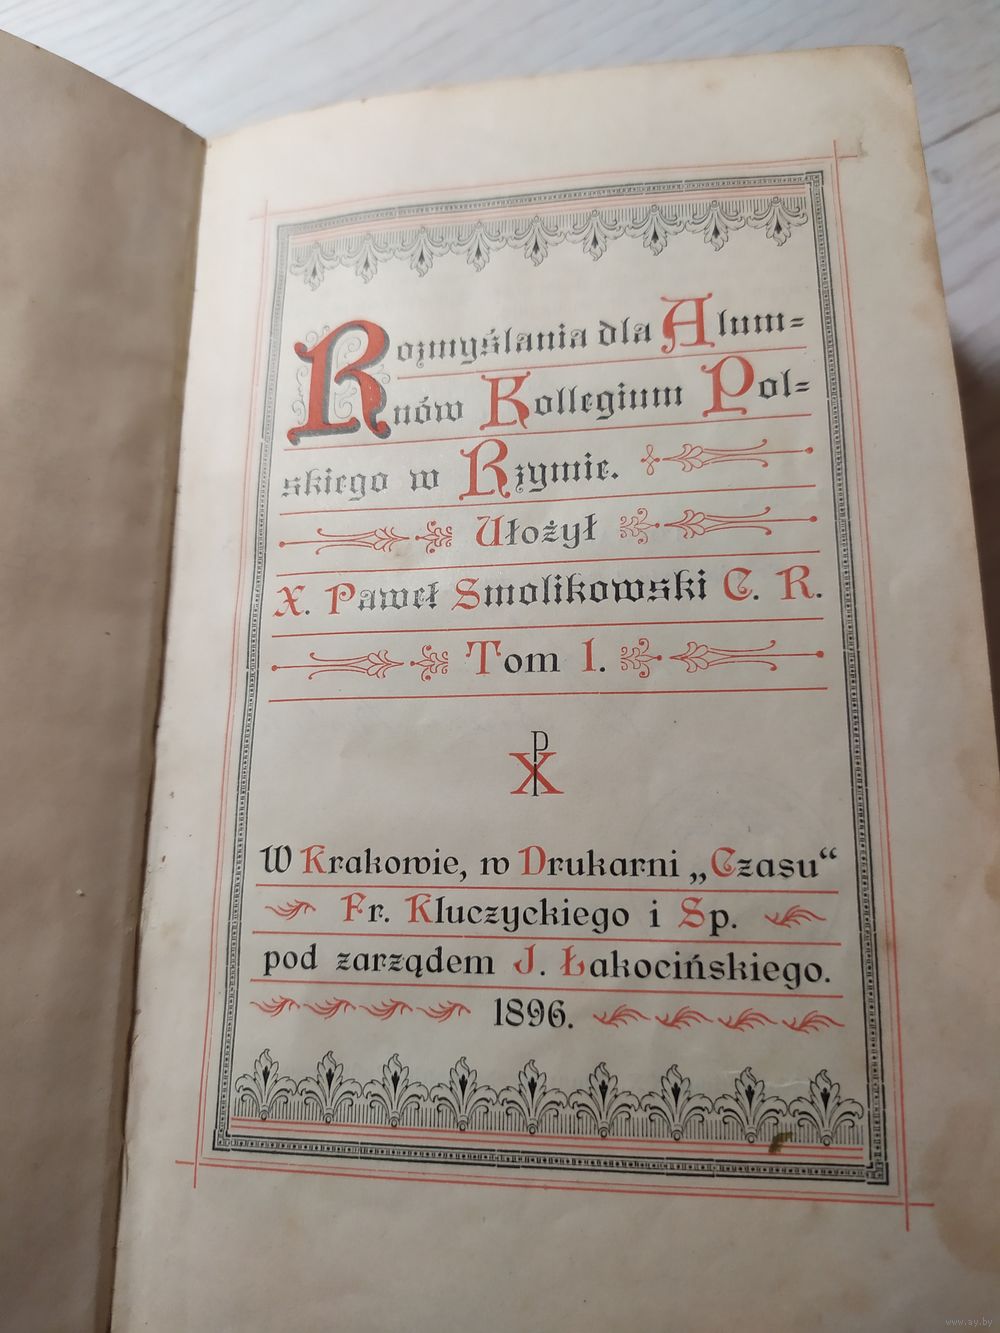 Rozmyślania dla Alum=
nów Kollegium Pol=
skiego w Rzymie.
Ułożył
X. Paweł Smolikowski C. R.
Tom I.
W Krakowie, w Drukarni „Czasu“
Fr. Kluczyckiego i Sp.
pod zarządem J. Łakocińskiego.
1896.
www.ay.by